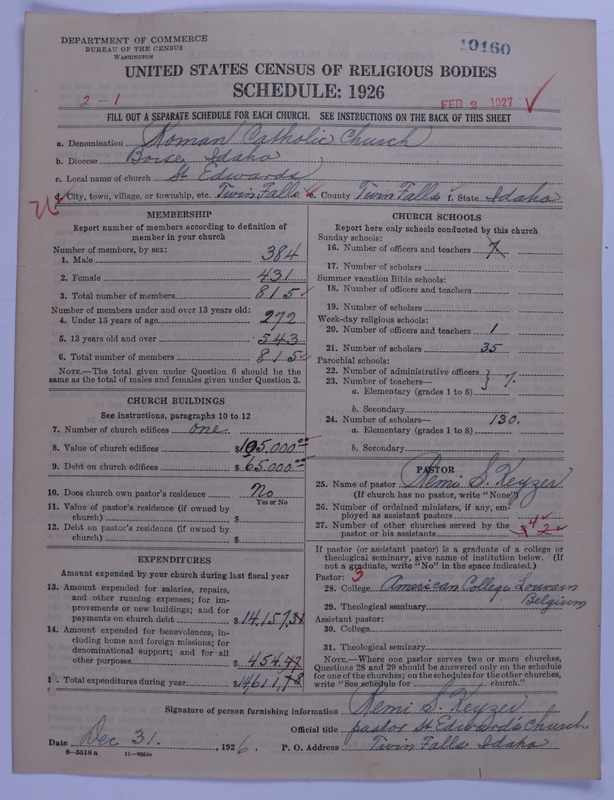 DEPARTMENT OF COMMERCE
BUREAU OF THE CENSUS
WASHINGTON
10160
UNITED STATES CENSUS OF RELIGIOUS BODIES
SCHEDULE: 1926
2-1
FEB 2 1927
FILL OUT A SEPARATE SCHEDULE FOR EACH CHURCH. SEE INSTRUCTIONS ON THE BACK OF THIS SHEET
a. Denomination Roman Catholic Church
b. Diocese Boise, Idaho
c. Local name of church St Edwards
d. City, town, village, or township, etc. Twin Falls e. County Twin Falls f. State Idaho
MEMBERSHIP
Report number of members according to definition of
member in your church
Number of members, by sex:
1. Male 384
2. Female 431
3. Total number of members 815
Number of members under and over 13 years old:
4. Under 13 years of age 272
5. 13 years old and over 543
6. Total number of members 815
NOTE.—The total given under Question 6 should be
same as the total of males and females given under Question 3.
CHURCH BUILDINGS
See instructions, paragraphs 10 to 12
7. Number of church edifices one
8. Value of church edifices $105.000.00
9. Debt on church edifices $65.000.00
10. Does church own pastor's residence No
Yes or No
11. Value of pastor's residence (if owned by
church) $
12. Debt on pastor's residence (if owned by
church) $
EXPENDITURES
Amount expended by your church during last fiscal year
13. Amount expended for salaries, repairs,
and other running expenses; for im-
provements or new buildings; and for
payments on church debt $14,157,31
14. Amount expended for benevolences, in-
cluding home and foreign missions; for
denominational support; and for all
other purposes 454.47
Total expenditures during year $14611,78
CHURCH SCHOOLS
Report here only schools conducted by this church
Sunday schools:
16. Number of officers and teachers 7
17. Number of scholars
Summer vacation Bible schools:
18. Number of officers and teachers
19. Number of scholars
Week-day religious schools:
20. Number of officers and teachers 1
21. Number of scholars 35
Parochial schools:
22. Number of administrative officers
23. Number of teachers— 7.
a. Elementary (grades 1 to 8)
b. Secondary
24. Number of scholars— 130.
a. Elementary (grades 1 to 8)
b. Secondary
PASTOR
25. Name of pastor Remi S. Keyzer
(If church has no pastor, write "None")
26. Number of ordained ministers, if any, em-
ployed as assistant pastors
27. Number of other churches served by the
pastor or his assistants 2
If pastor (or assistant pastor) is a graduate of a college or
theological seminary, give name of institution below. (If
not a graduate, write "No" in the space indicated.)
Pastor: 3
28. College American College Louvain
Belgium
29. Theological seminary
Assistant pastor:
30. College
31. Theological seminary
NOTE.—Where one pastor serves two or more churches,
Questions 28 and 29 should be answered only on the schedule
for one of the churches; on the schedules for the other churches,
write "See schedule for church."
Signature of person furnishing information Remi S. Keyzer
Official title pastor St Edward's Church
Date Dec 31., 1926. P. O. Address Twin Falls Idaho